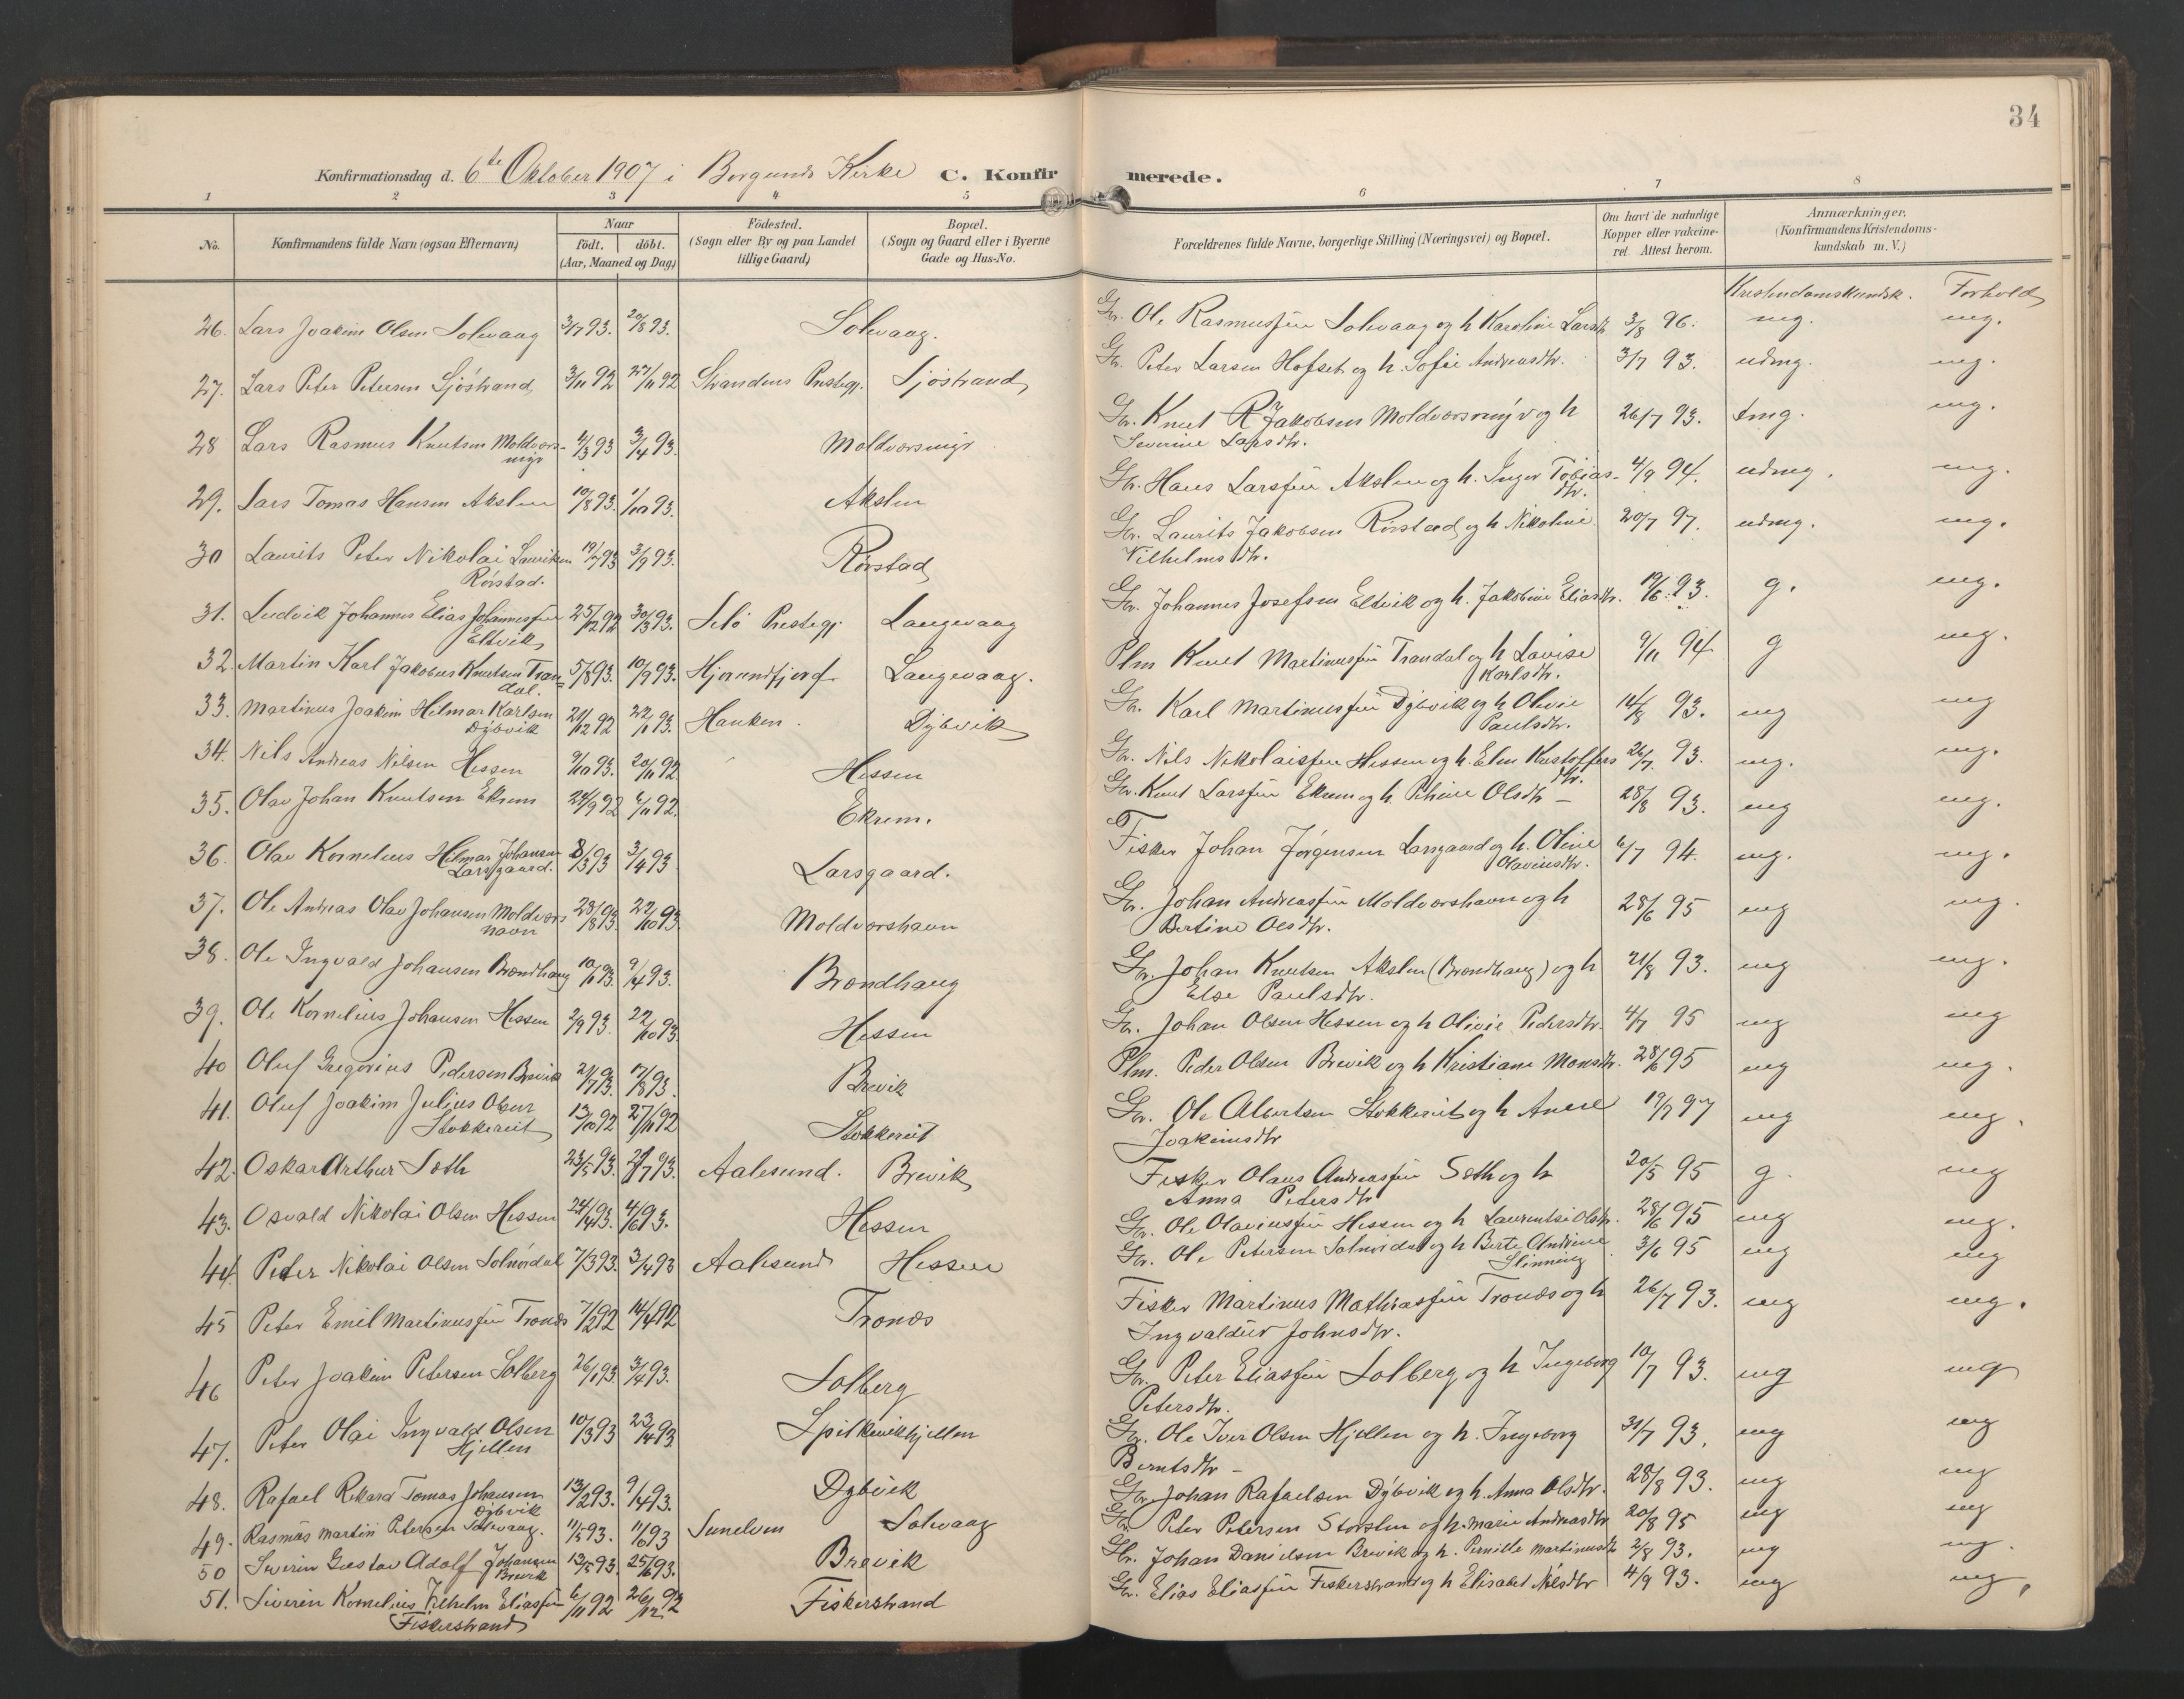 34
Konfirmationsdag d. 6te Oktober 1907 i Borgunds Kirke C. Konfir merede.
1 2 3 4 5 6 7 8
No. Konfirmandens fulde Navn (ogsaa Efternavn) Naar födt. döbt. (Aar, Maaned og Dag) Födested. (Sogn eller By og paa Landet tillige Gaard) Bopæl. (Sogn og Gaard eller i Byerne Gade og Hus-No. Forældrenes fulde Navne, borgerlige Stilling (Næringsvei) og Bopæl. Om havt de naturlige Kopper eller vakcineret. Attest herom. Anmærkninger. (Konfirmandens Kristendomskundskab m. V.)
Kristendomskundsk. Forhold
26. Lars Joakim Olsen Solevaag 3/7 93. 20/8 93. Solevaag. Gr. Ole Rasmussen Solevaag og h Karoline Larsdtr 3/8 96. mg. mg.
27. Lars Peter Petersen Sjöstrand 3/11 92 27/11 92 Strandens Prestegj. Sjöstrand Gr. Peter Larsen Hofset og h. Sofie Andreasdtr. 3/7 93. udmg. mg.
28 Lars Rasmus Knutsen Moldværsmyr 4/3 93 3/4 93. Moldværsmyr Gr. Knut R Jakobsen Moldværsmyr og h
Severine Larsdtr. 26/7 93. tmg. mg.
29. Lars Tomas Hansen Akslen 10/8 93. 1/10 93. Akslen Gr. Hans Larssen Akslen og h. Inger Tobiasdtr. 4/9 94. udmg. mg.
30 Laurits Peter Nikolai Lauritsen
Rörstad. 19/7 93 3/9 93. Rörstad Gr. Laurits Jakobsen Rörstad og h Nikoline
Vilhelmsdtr. 20/7 97. udmg. mg.
31. Ludvik Johannes Elias Johannessen
Eltvik 25/12 92 30/3 93. Selö Prestegj Langevaag Gr. Johannes Josefsen Eltvik og h. Jakobine Eliasdtr. 19/6 93. g. mg.
32. Martin Karl Jakobus Knutsen Trandal. 5/8 93. 10/9 93. Hjørundfjord Langevaag. Plm Knut Martinussen Trandal og h Lovise
Karlsdtr. 9/11 94 g mg.
33. Martinus Joakim Hilmar Karlsen
Dybvik 21/12 92 22/1 93. Hanken. Dybvik Gr. Karl Martinussen Dybvik og h Olivie
Paulsdtr. 14/8 93. mg mg
34. Nils Andreas Nilsen Hessen 9/10 93. 20/11 92 Hessen Gr. Nils Nikolaissen Hessen og h. Elen Kristoffersdtr. 26/7 93. mg. mg.
35. Olav Johan Knutsen Ekrem 24/9 92 6/11 92. Ekrem. Gr. Knut Larssen Ekrem og h. Oldtr - 28/8 93. mg mg.
36. Olav Kornelius Hilmar Johansen
Larsgaard. 8/3 93 3/4 93 Larsgaard. Fisker Johan Jörgensen Larsgaard og h. Oline
Olavinsdtr. 6/7 94. mg. mg.
37. Ole Andreas Olav Johansen Moldværshavn 28/8 93. 22/10 93. Moldværshavn Gr. Johan Andreassen Moldværshavn og h
Bertine Olsdtr. 28/6 95 mg mg.
38. Ole Ingvald Johansen Brandhaug 10/1 93. 9/4 93. Brandhaug Gr. Johan Knutsen Akslen (Brandhaug) og h
Else Paulsdtr. 21/8 93. mg mg.
39. Ole Kornelius Johansen Hessen 2/9 93. 22/10 93. Hessen Gr. Johan Olsen Hessen og h Olivie Pedersdtr. 4/7 95 mg mg
40 Oluf Gregorius Pedersen Brevik 21/7 93. 17/8 93. Brevik Plm. Peder Olsen Brevik og h Kristiane Monsdtr. 28/6 95 mg mg.
41. Oluf Joakim Julius Olsen
Stokkereit 13/10 92 27/11 92 Stokkereit Gr. Ole Albertsen Stokkereit og h Anne
Joakimsdtr 19/7 97 mg mg.
42. Oskar Arthur Soth 23/5 93. 27/7 93. Aalesund. Brevik Fisker Olaus Andreassen Soth og h
Anna Pedersdtr 20/5 95 g. mg
43. Osvald Nikolai Olsen Hessen 24/4 93. 4/6 93. Hessen Gr. Ole Olavinssen Hessen og h Laurentse Olsdtr. 28/6 95 mg mg.
44 Peder Nikolai Olsen Solnördal 7/3 93. 3/4 93 Aalesund Hessen Gr. Ole Petersen Solnördal og h Berte Andrine
Slinning 3/6 95 mg mg
45 Peter Emil Martinussen Tronds 7/2 92 14/4 92 Tronds Fisker Martinus Mathiassen Tronds og h
Ingvaldur Johnsdtr. 26/7 93. mg mg.
46 Peter Joakim Petersen Solberg 26/1 93. 3/4 93. Solberg Gr. Peter Eliassen Solberg og h Ingeborg
Petersdtr. 10/7 93. mg mg
47. Peter Olai Ingvald Olsen
Hjellen 10/3 93 23/4 93 Spilkevikhjellen Gr. Ole Iver Olsen Hjellen og h. Ingeborg
Berntsdtr - 31/7 93. mg mg
48. Rafael Rikard Tomas Johansen
Dybvik 13/2 93. 9/4 93. Dybvik Gr. Johan Rafaelsen Dybvik og h. Anna Olsdtr. 28/8 93. mg mg
49. Rasmus Martin Petersen Solevaag. 11/5 93. 11/6 93 Sunelven Solevaag Gr. Peter Petersen Storslen og h. Marie Andreasdtr 20/8 95 mg mg
50 Severin Gustav Adolf Johansen
Brevik 13/5 93. 25/6 93. Brevik Gr. Johan Danielsen Brevik og h. Pernille Martinusdtr 2/8 93. mg mg.
51. Severin Kornelius Vilhelm Eliassen
Fiskerstrand 6/11 92 26/12 92 Fiskerstrand Gr. Elias Eliassen Fiskerstrand og h Elisabet Nilsdtr 4/9 93. mg mg,